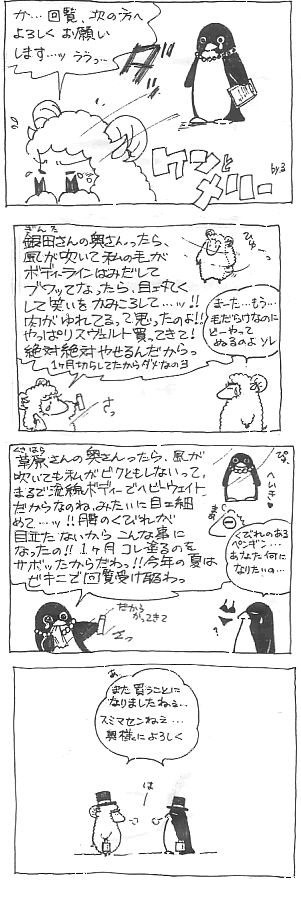 か…回覧、次の方へ
よろしくお願い
します…ッううっ…
ダダ
ケンと
メリー
by る
ぎんた
銀田さんの奥さんったら、
風が吹いて私の毛が
ボディーラインはみだして
ブワッてなったら、目まるく
して笑いをかみころして…ッ!!
肉がゆれてるって思ったのよ!!
やっぱりスヴェルト買ってきて!
絶対絶対やせるんだからっ
1ヶ月切らしてたからダメなのヨ
さっ
また…もう…
毛だらけなのに
どーやって
ぬるのよソレ
くさはら
草原さんの奥さんったら、風が
吹いても私がピクともしないって、
まるで流線ボディーでヘビーウェイト
だからなのね、みたいに目を細
めて…ッ!!胴のくびれが
目立たないからこんな事に
なったの!!1ヶ月コレ塗るのを
サボッたからだわ!!今年の夏は
ビキニで回覧受け取るわっ
ぴゅー
へいき♥
まあ
くびれのある
ペンギン…
あなた何に
なりたいの…
?
だから
かってきて
あ、
また買うことに
なりましたねぇ…
スミマセンねぇ…
奥様によろしく
は